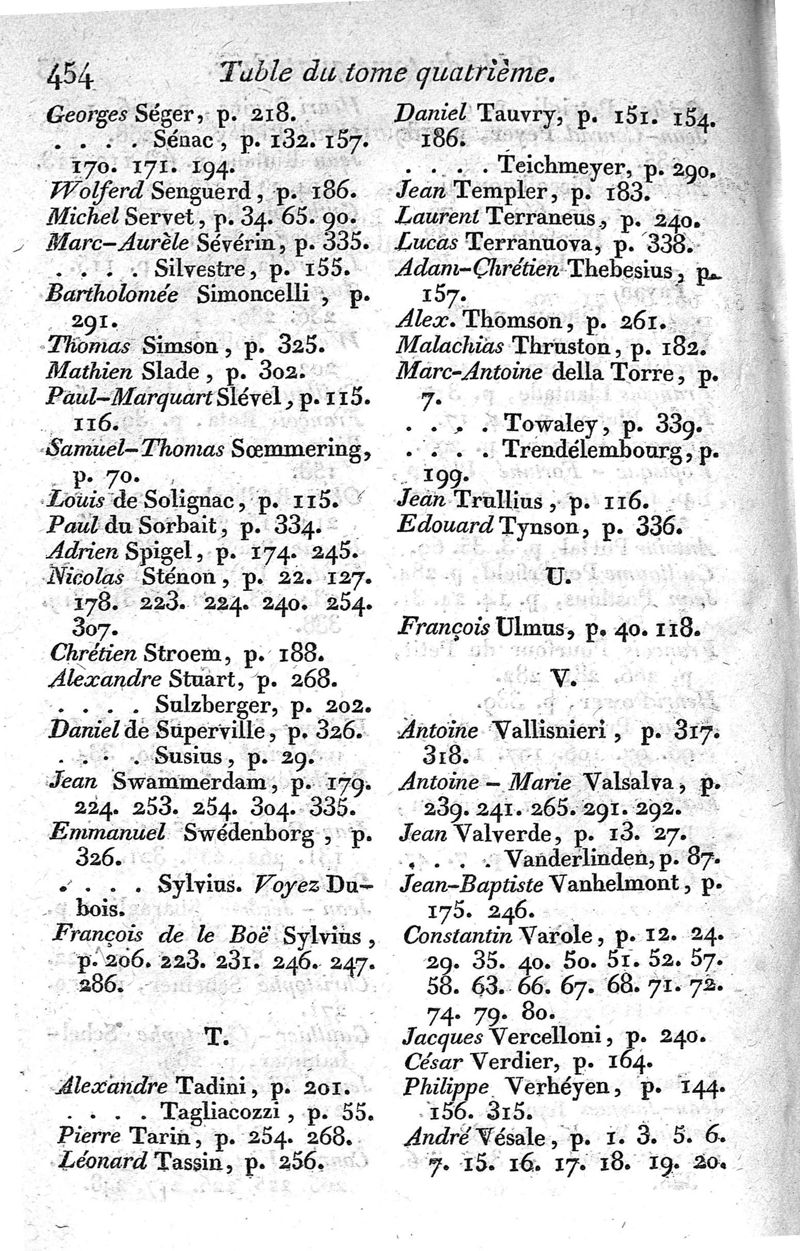 454 Table du tome quatrième.
Georges Séger, p. 218.
. . . . Sénac, p. 132. 157.
170. 171. 194.
Wolferd Senguerd, p. 186.
Michel Servet, p. 34. 65. 90.
Marc-Aurèle Sévérin, p. 335.
. . . . Silvestre, p. 155.
Bartholomée Simoncelli, p.
291.
Thomas Simson, p. 325.
Mathien Slade, p. 302.
Paul-Marquart Slével, p. 115.
116.
Samuel-Thomas Sœmmering,
p. 70.
Louis de Solignac, p. 115.
Paul du Sorbait, p. 334.
Adrien Spigel, p. 174. 245.
Nicolas Sténon, p. 22. 127.
178. 223. 224. 240. 254.
307.
Chrétien Stroem, p. 188.
Alexandre Stuart, p. 268.
. . . . Sulzberger, p. 202.
Daniel de Superville, p. 326.
. . . . Susius, p. 29.
Jean Swammerdam, p. 179.
224. 253. 254. 304. 335.
Emmanuel Swédenborg, p.
326.
. . . . Sylvius. Voyez Du-
bois.
François de le Boë Sylvius,
p. 206. 223. 231. 246. 247.
286.
T.
Alexandre Tadini, p. 201.
. . . . Tagliacozzi, p. 55.
Pierre Tarin, p. 254. 268.
Léonard Tassin, p. 256.
Daniel Tauvry, p. 151. 154.
186.
. . . . Teichmeyer, p. 290.
Jean Templer, p. 183.
Laurent Terraneus, p. 240.
Lucas Terranuova, p. 338.
Adam-Chrétien Thebesius, p.
157.
Alex. Thomson, p. 261.
Malachias Thruston, p. 182.
Marc-Antoine della Torre, p.
7.
. . . . Towaley, p. 339.
. . . . Trendélembourg, p.
199.
Jean Trullius, p. 116.
Edouard Tynson, p. 336.
U.
François Ulmus, p. 40. 118.
V.
Antoine Vallisnieri, p. 317.
318.
Antoine-Marie Valsalva, p.
239. 241. 265. 291. 292.
Jean Valverde, p. 13. 27.
. . . . Vanderlinden, p. 87.
Jean-Baptiste Vanhelmont, p.
175. 246.
Constantin Varole, p. 12. 24.
29. 35. 40. 50. 51. 52. 57.
58. 63. 66. 67. 68. 71. 72.
74. 79. 80.
Jacques Vercelloni, p. 240.
César Verdier, p. 164.
Philippe Verhéyen, p. 144.
156. 315.
André Vésale, p. 1. 3. 5. 6.
7. 15. 16. 17. 18. 19. 20.